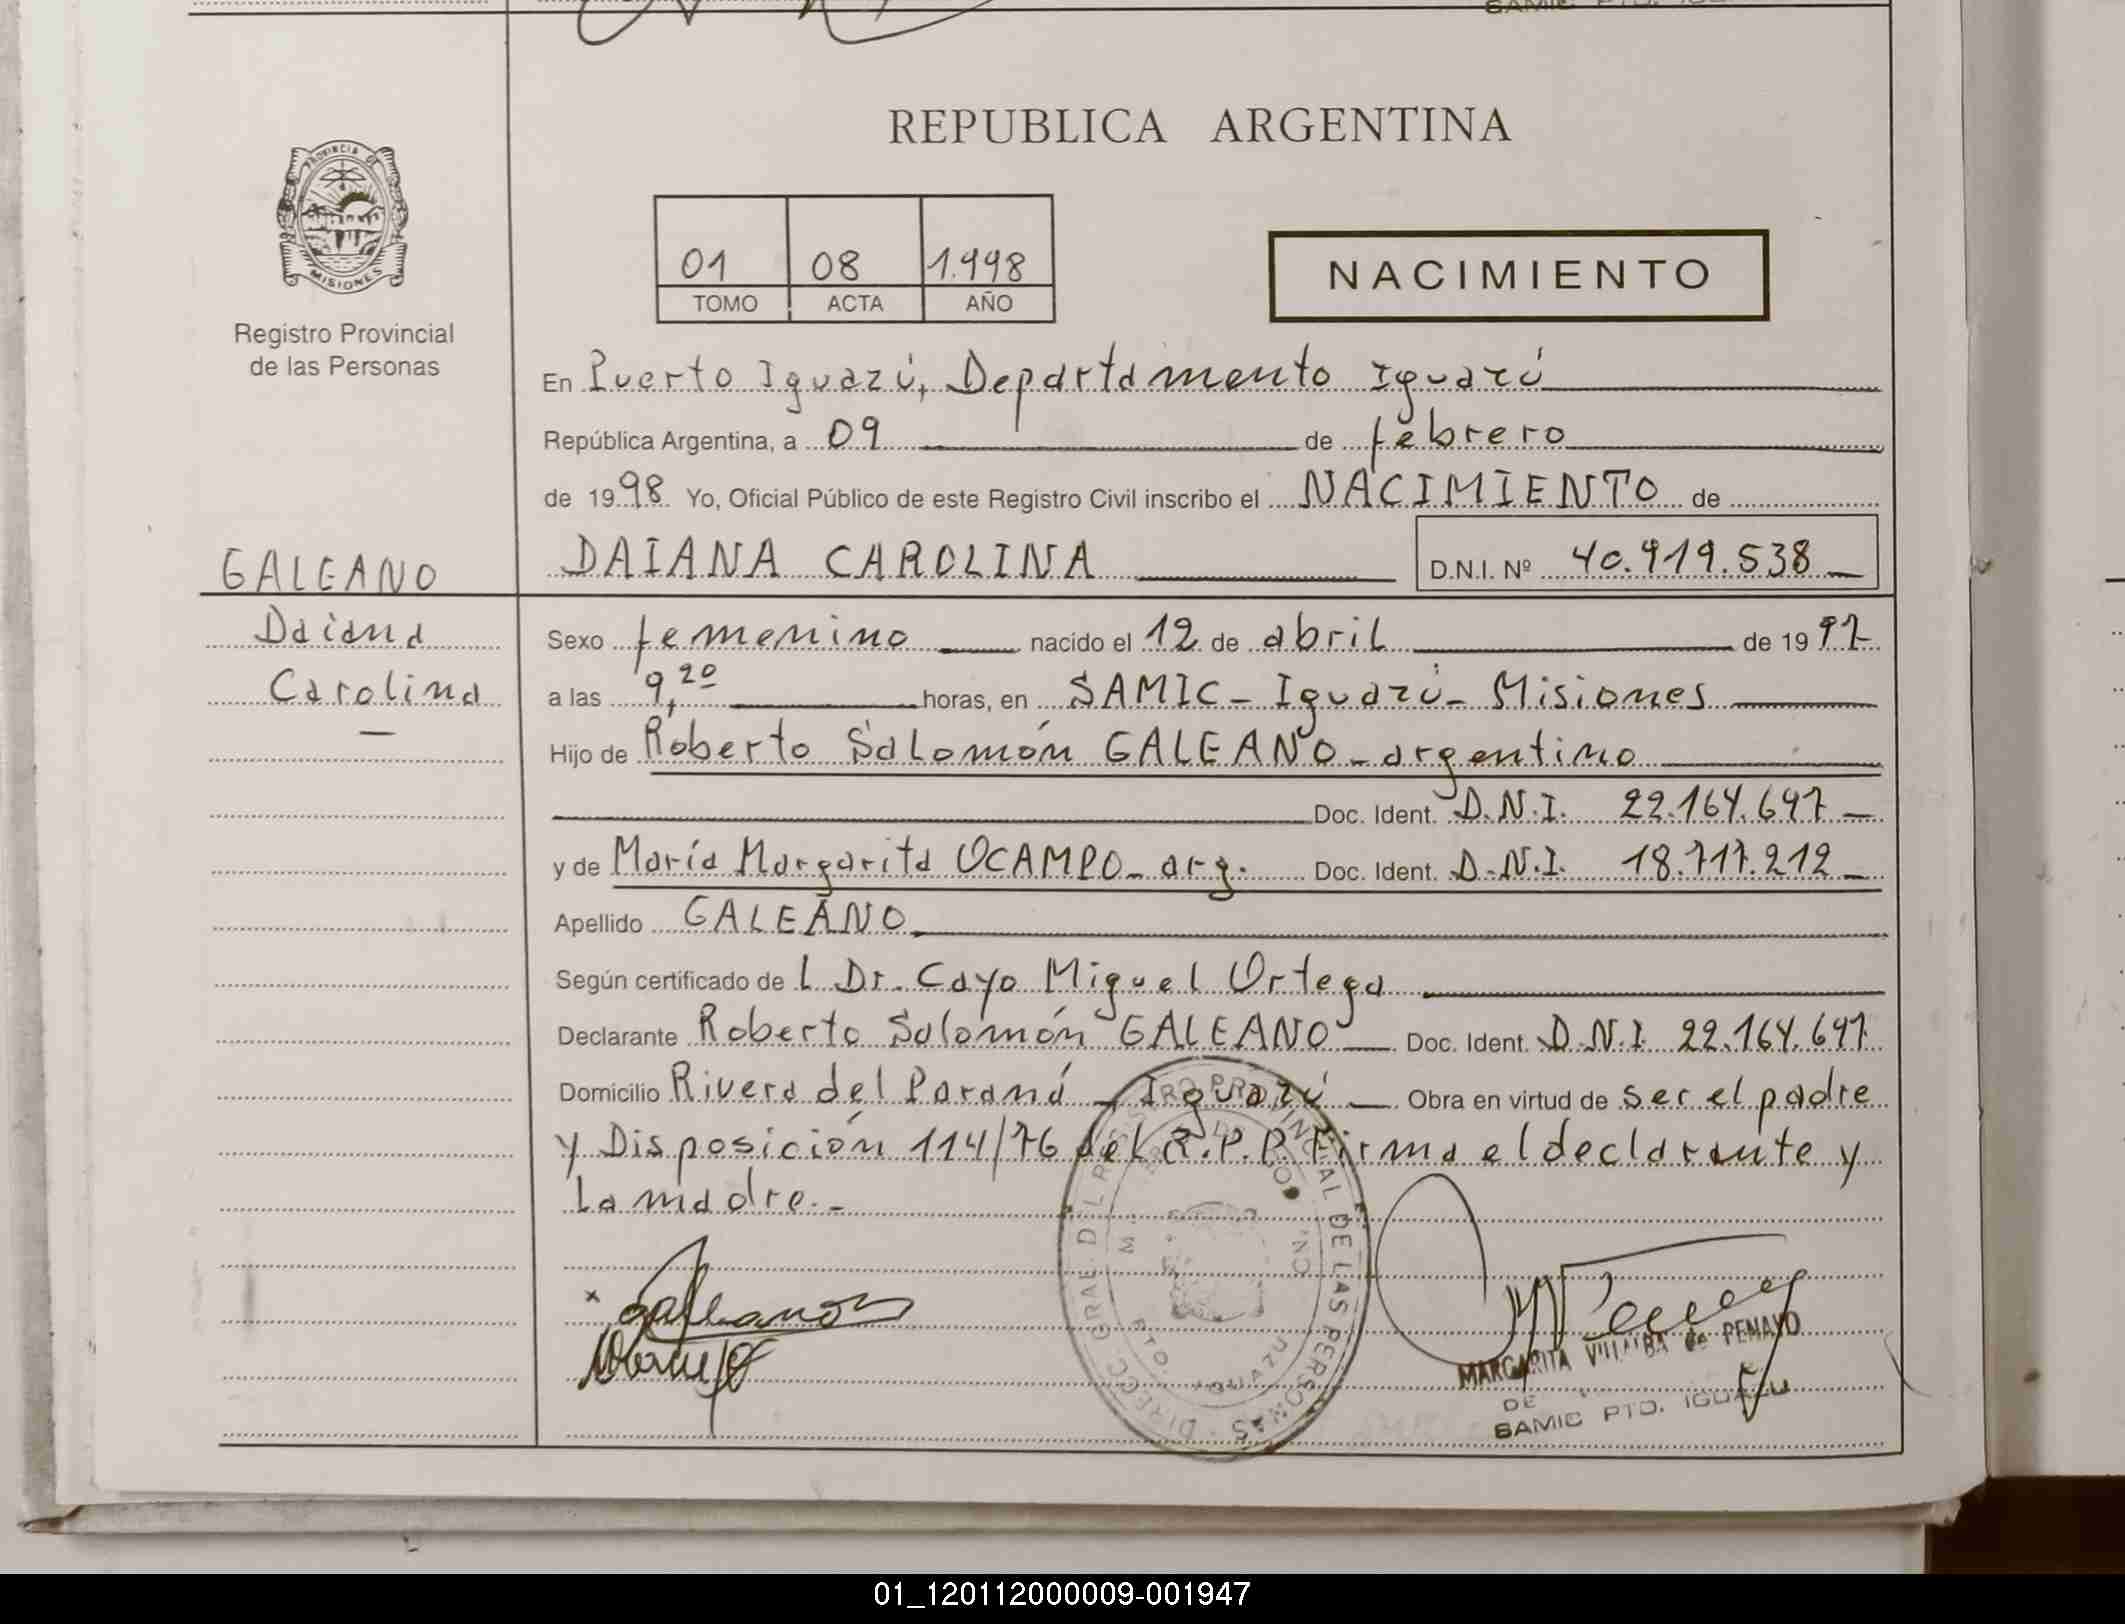 SAMIC PTO. IGU
REPUBLICA ARGENTINA
PROVINCIA DE
MISIONES
Registro Provincial
de las Personas
01 08 1.998
TOMO ACTA AÑO
NACIMIENTO
En Puerto Iguazú, Departamento Iguazú
República Argentina, a 09 de febrero
de 1998 Yo, Oficial Público de este Registro Civil inscribo el NACIMIENTO de
DAIANA CAROLINA D.N.I. Nº 40.919.538
GALEANO
Daiana
Carolina
Sexo femenino nacido el 12 de abril de 1997
a las 9,20 horas, en SAMIC - Iguazú - Misiones
Hijo de Roberto Salomón GALEANO - argentino
Doc. Ident. D.N.I. 22.164.697
y de María Margarita OCAMPO - arg. Doc. Ident. D.N.I. 18.717.212
Apellido GALEANO
Según certificado de l Dr. Cayo Miguel Ortega
Declarante Roberto Salomón GALEANO Doc. Ident. D.N.I. 22.164.697
Domicilio Rivera del Paraná - Iguazú Obra en virtud de ser el padre
y Disposición 114/76 del R.P.P. Firma el declarante y
la madre.-
DIRECC. GRAL. DEL REGISTRO PROVINCIAL DE LAS PERSONAS
PTO. IGUAZU
MARGARITA VILLALBA de PENAYO
DE
SAMIC PTO. IGUAZU
01_120112000009-001947